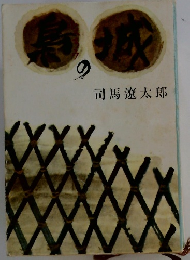 梟の城
司馬遼太郎